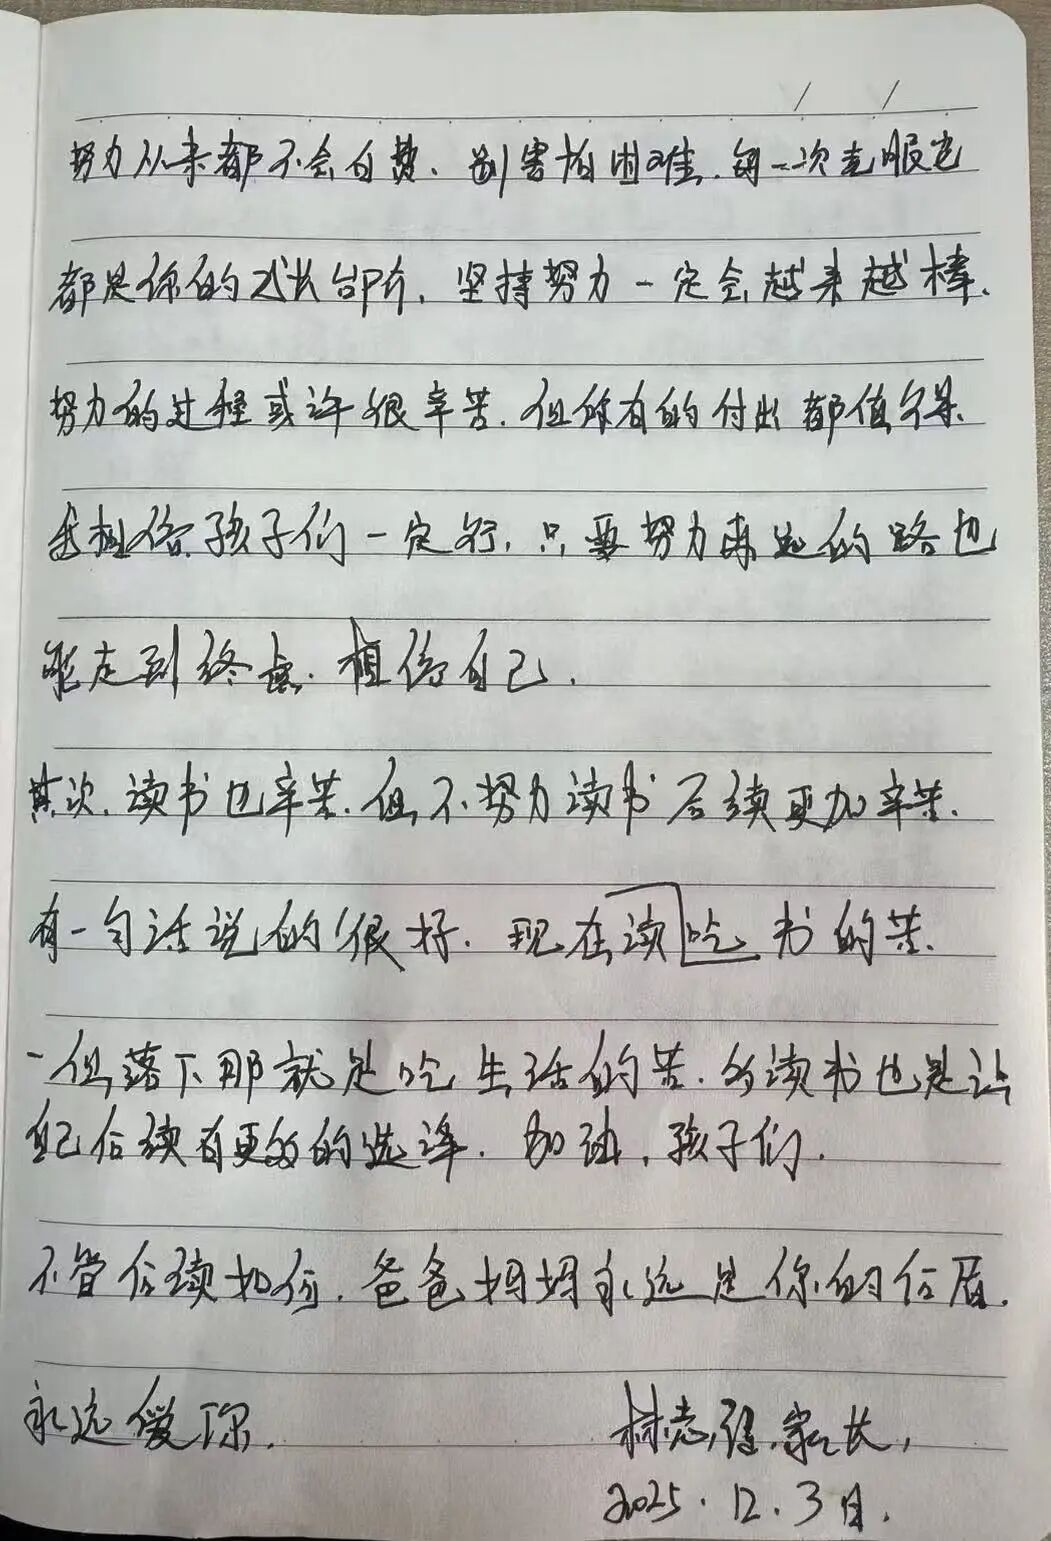 努力从来都不会白费、别害怕困难、每一次克服它
都是你的成长台阶，坚持努力一定会越来越棒、
努力的过程或许很辛苦、但所有的付出都值得、
我相信孩子们一定行，只要努力再远的路也
能走到终点、相信自己，
其次，读书也辛苦、但不努力读书后续更加辛苦、
有一句话说的很好、现在读吃书的苦、
一但落下那就是吃生活的苦、多读书也是让
自己后续有更多的选择、加油，孩子们、
不管后续如何，爸爸妈妈永远是你的后盾、
永远爱你、
林志 家长，
2025.12.3日、